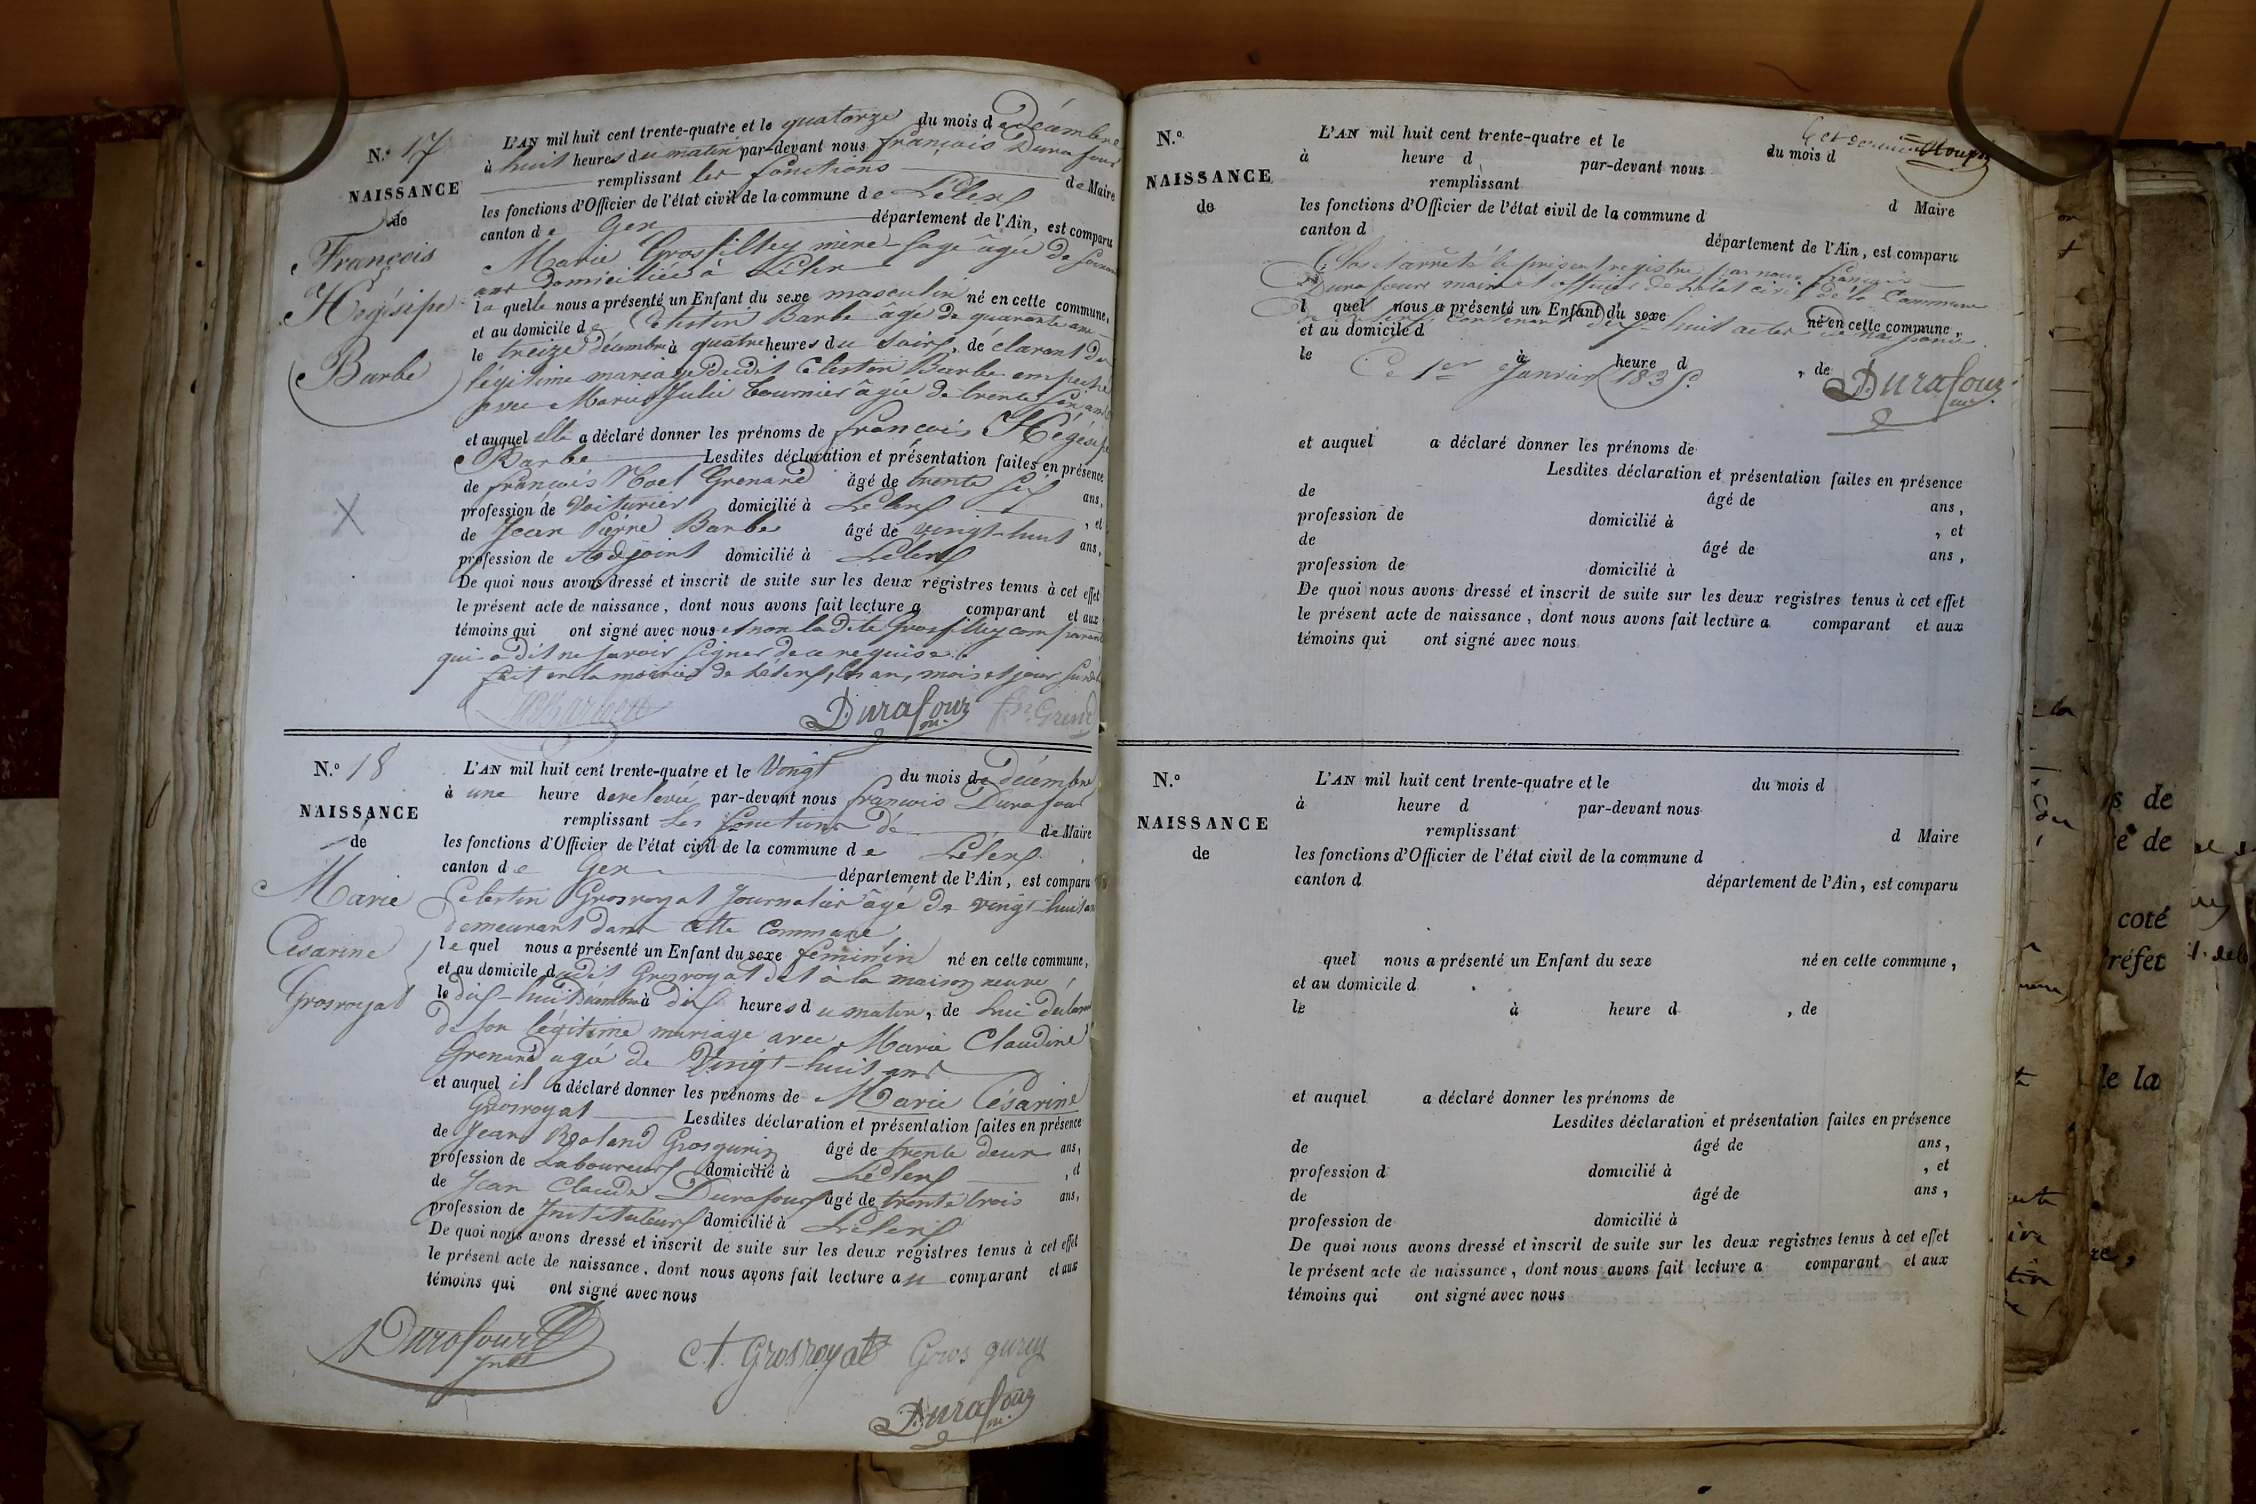 N.º 17
NAISSANCE
de
François
Hégésipe
Barbe
L'AN mil huit cent trente-quatre et le quatorze du mois de décembre
à huit heures du matin par-devant nous françois Durafour
remplissant les fonctions de Maire
les fonctions d'Officier de l'état civil de la commune de Lélex
canton de Gex département de l'Ain, est comparu
Marie Grosfilley mère sage âgée de
ans domiciliée à Lélex
la quelle nous a présenté un Enfant du sexe masculin né en cette commune,
et au domicile de Célestin Barbe âgé de quarante ans
le treize décembre à quatre heures du soir, de clarant du
légitime mariage dudit Célestin Barbe
avec Marie Julie Tournier âgée de trente ans
et auquel elle a déclaré donner les prénoms de françois Hégésipe
Barbe Lesdites déclaration et présentation faites en présence
de françois Noel Grenard âgé de trente six ans,
profession de Voiturier domicilié à Lélex , et
de Jean Pierre Barbe âgé de vingt-huit ans,
profession de Adjoint domicilié à Lélex
De quoi nous avons dressé et inscrit de suite sur les deux registres tenus à cet effet
le présent acte de naissance, dont nous avons fait lecture a comparant et aux
témoins qui ont signé avec nous et non la dite Grosfilley comparante
qui a dit ne savoir signer de ce requise.
fait en la mairie de Lélex, les an, mois et jour susdits
Durafour m. Grend
N.º 18
NAISSANCE
de
Marie
Césarine
Grosroyat
L'AN mil huit cent trente-quatre et le Vingt du mois de décembre
à une heure de relevée par-devant nous françois Durafour
remplissant les fonctions de de Maire
les fonctions d'Officier de l'état civil de la commune de Lélex
canton de Gex département de l'Ain, est comparu
Célestin Grosroyat Journalier âgé de vingt-huit ans
demeurant dans cette Commune
le quel nous a présenté un Enfant du sexe féminin né en cette commune,
et au domicile dudit Grosroyat dit à la maison neuve
le dix-huit Décembre à dix heures du matin, de lui déclarant
de son légitime mariage avec Marie Claudine
Grenard agée de Vingt-huit ans
et auquel il a déclaré donner les prénoms de Marie Césarine
Grosroyat Lesdites déclaration et présentation faites en présence
de Jean Roland Grosgurin âgé de trente deux ans,
profession de Laboureur domicilié à Lélex , et
de Jean Claude Durafour âgé de trente trois ans,
profession de Instituteur domicilié à Lélex
De quoi nous avons dressé et inscrit de suite sur les deux registres tenus à cet effet
le présent acte de naissance, dont nous avons fait lecture au comparant et aux
témoins qui ont signé avec nous
Durafour C.t. Grosroyat Gros gurin
Durafour m.
N.º
NAISSANCE
de
L'AN mil huit cent trente-quatre et le du mois d
à heure d par-devant nous
remplissant d Maire
les fonctions d'Officier de l'état civil de la commune d
canton d département de l'Ain, est comparu
Clos et arrêté le présent registre par nous françois
Durafour maire et officier de l'état civil de la Commune
l quel nous a présenté un Enfant du sexe né en cette commune,
de contenant dix-huit actes de naissance
et au domicile d
le à heure d , de
Ce 1er Janvier 1835. Durafour m.
et auquel a déclaré donner les prénoms de
Lesdites déclaration et présentation faites en présence
de âgé de ans,
profession de domicilié à , et
de âgé de ans,
profession de domicilié à
De quoi nous avons dressé et inscrit de suite sur les deux registres tenus à cet effet
le présent acte de naissance, dont nous avons fait lecture a comparant et aux
témoins qui ont signé avec nous
N.º
NAISSANCE
de
L'AN mil huit cent trente-quatre et le du mois d
à heure d par-devant nous
remplissant d Maire
les fonctions d'Officier de l'état civil de la commune d
canton d département de l'Ain, est comparu
quel nous a présenté un Enfant du sexe né en cette commune,
et au domicile d
le à heure d , de
et auquel a déclaré donner les prénoms de
Lesdites déclaration et présentation faites en présence
de âgé de ans,
profession d domicilié à , et
de âgé de ans,
profession de domicilié à
De quoi nous avons dressé et inscrit de suite sur les deux registres tenus à cet effet
le présent acte de naissance, dont nous avons fait lecture a comparant et aux
témoins qui ont signé avec nous
de
de
coté
réfet
de la